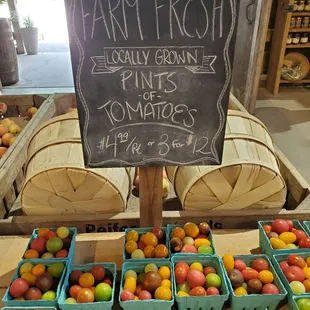 FARM FRESH
LOCALLY GROWN
PINTS
-OF-
TOMATOES
$4.99/Pt. or 3 for $12